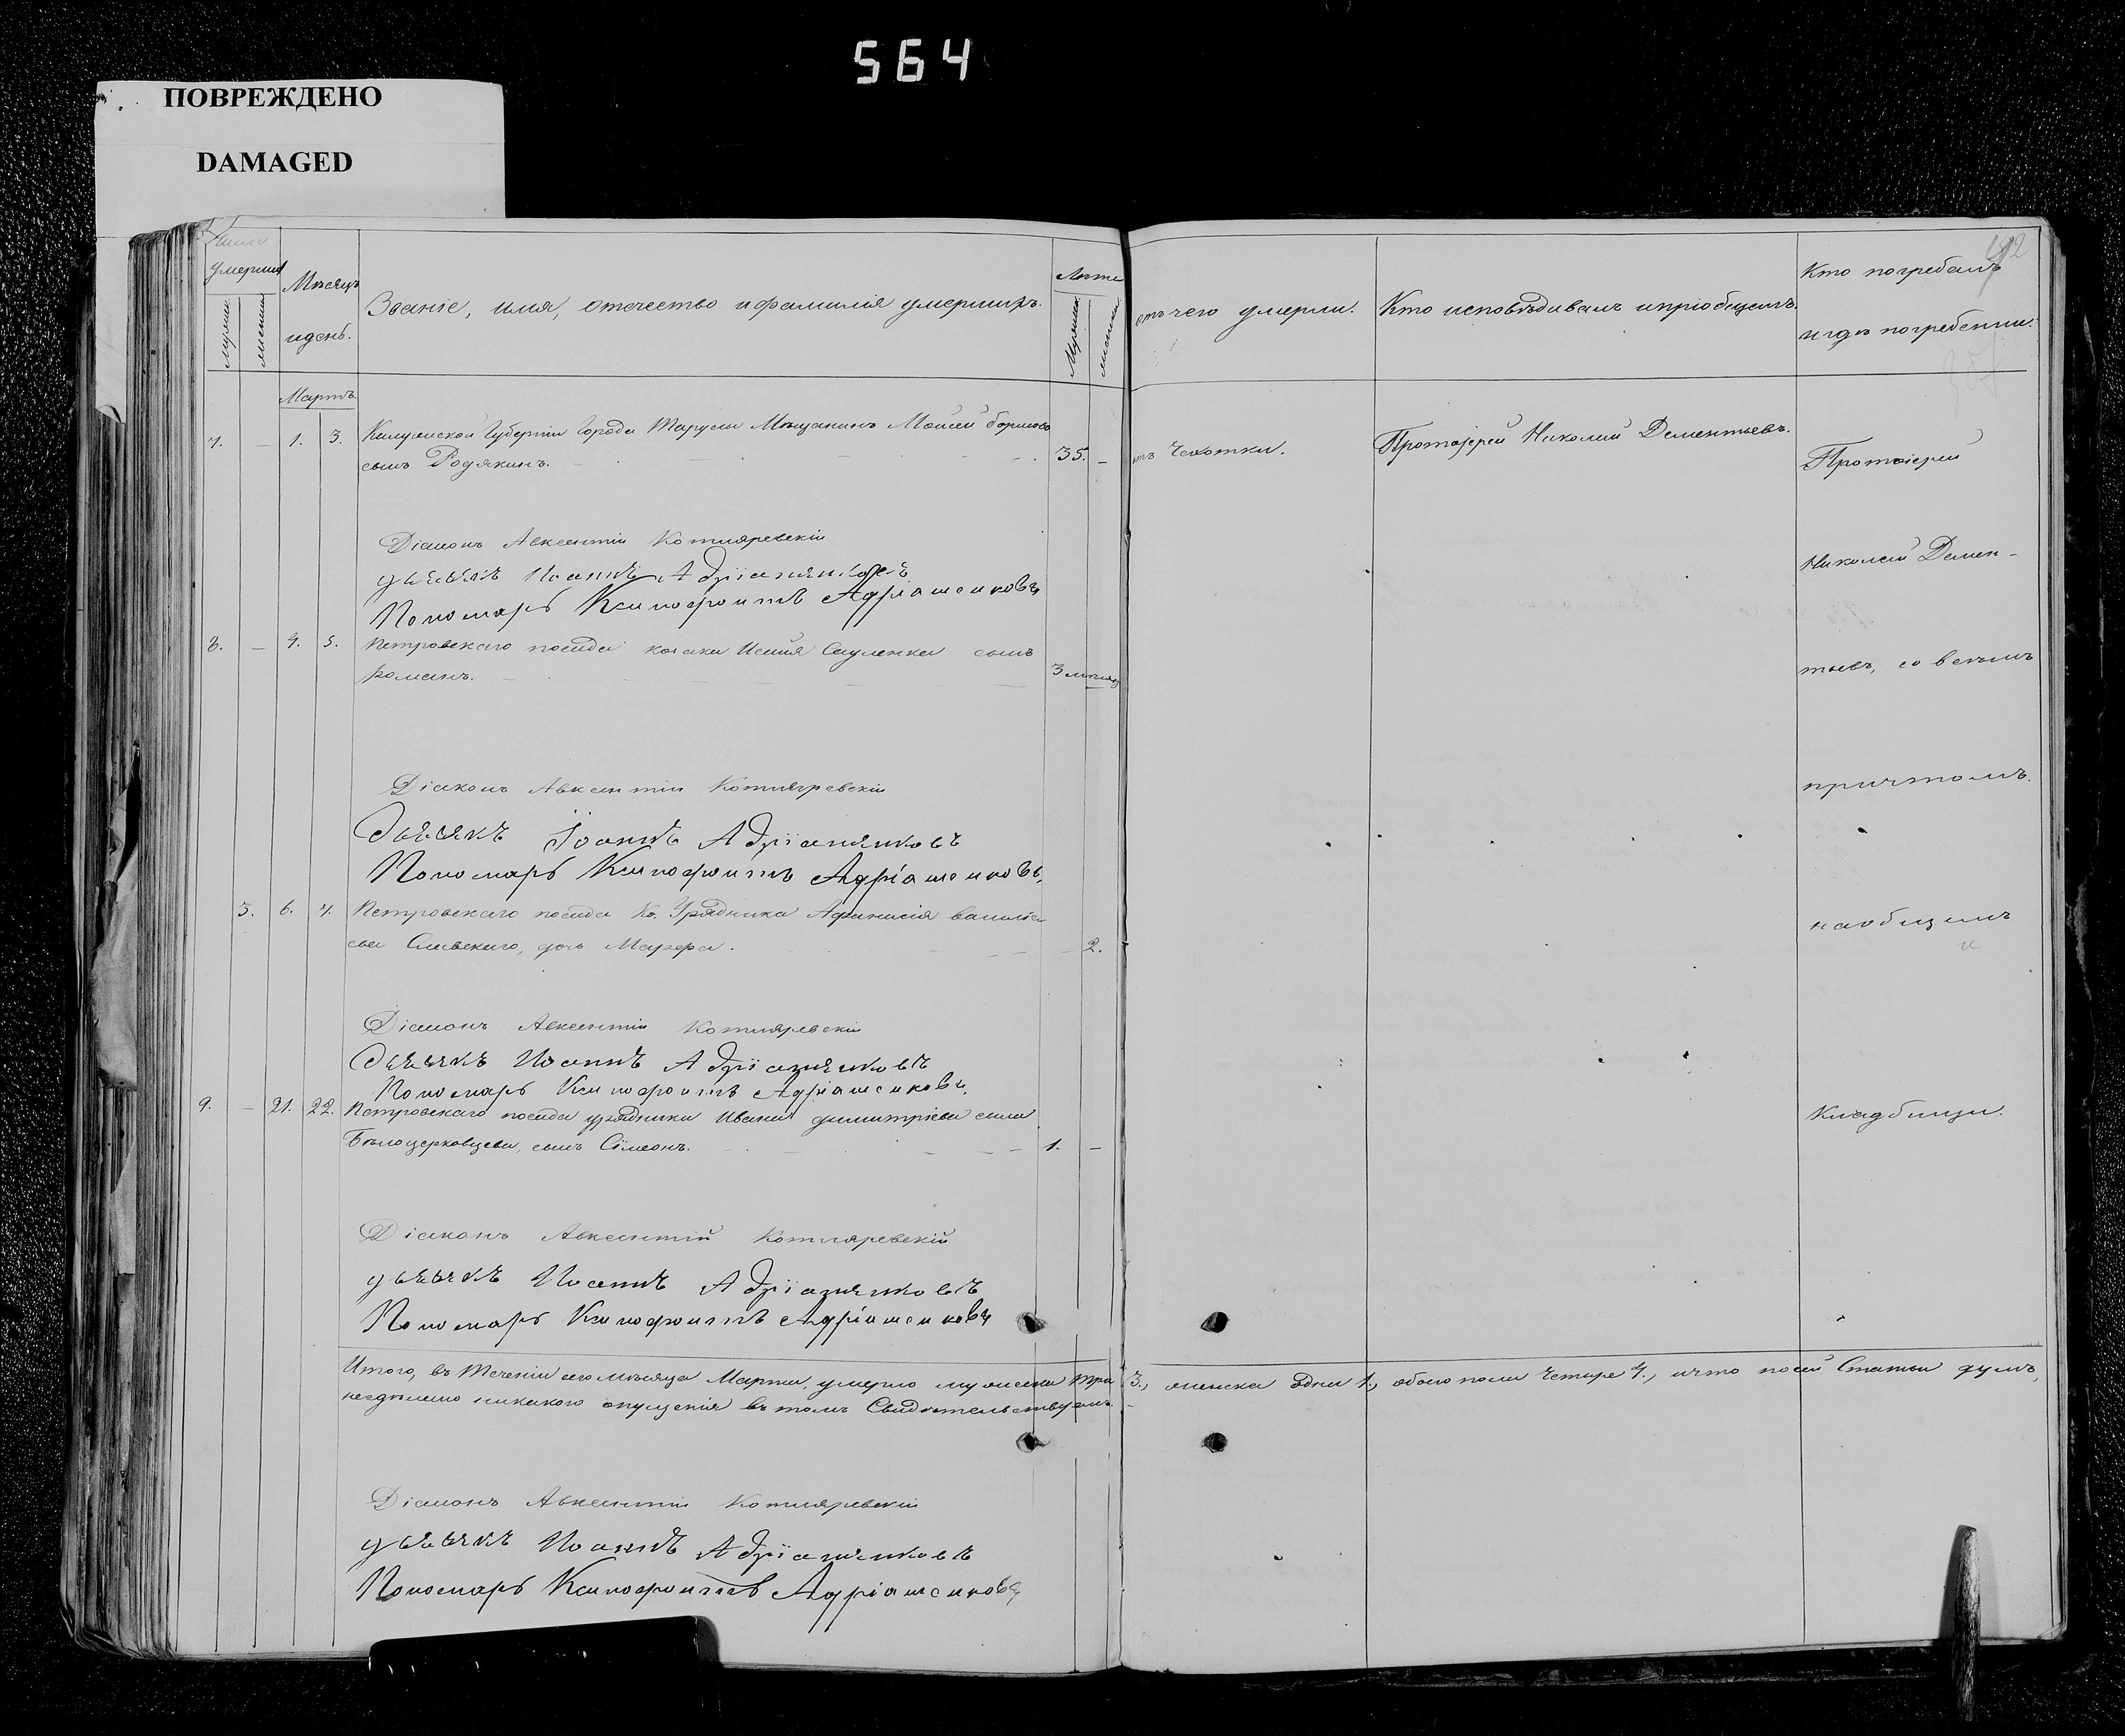 564
ПОВРЕЖДЕНО
DAMAGED
Число
умершихъ
мужска
женска
Мѣсяцъ
и день.
Званіе, имя, отечество и фамилія умершихъ.
Лѣта
Мужска
женска
отъ чего умерли.
Кто исповѣдывалъ и пріобщалъ.
Кто погребалъ
и гдѣ погребенны.
Мартъ.
7. – 1. 3. Калужской Губерніи Города Тарусы Мѣщанинъ Моисей Борисовъ 35. –
сынъ Родякинъ.
отъ Чахотки.
Протоіерей Николай Дементьевъ.
Протоіерей
Діаконъ Авксентій Котляревскій
дьячекъ Иоаннъ Адріашенковъ
Пономарь Ксинофонтъ Адріашенковъ
Николай Демен-
8. – 4. 5. Петровскаго посада козака Исаія Сауленка сынъ
Романъ. 3 мѣсяц
тьевъ, со всѣмъ
Діаконъ Авксентій Котляревскій
Дьячекъ Іоаннъ Адріашенковъ
Пономарь Ксинофонтъ Адріашенковъ.
причтомъ.
3. 6. 7. Петровскаго посада Ко. Урядника Афанасія Василіе
ва Славскаго, дочь Марфа. 2.
на общемъ
Діаконъ Авксентій Котляревскій
Дьячекъ Иоаннъ Адріашенковъ
Пономарь Ксинофонтъ Адріашенковъ.
9. – 21. 22. Петровскаго посада урядника Ивана Димитріева сына
Бѣлоцерковцева, сынъ Сімеонъ. 1. –
кладбищи.
Діаконъ Авксентій Котляревскій
дьячекъ Иоаннъ Адріашенковъ
Пономарь Ксинофонтъ Адріашенковъ
Итого, въ теченіи сего мѣсяца Марта, умерло мужеска три 3., женска одна 1., обоего пола четыре 4., и что по сей Статьи душъ,
несдѣлано никакого опущенія въ томъ Свидѣтельствуемъ.
Діаконъ Авксентій Котляревскій
дьячекъ Иоаннъ Адріашенковъ
Пономарь Ксинофонтъ Адріашенковъ